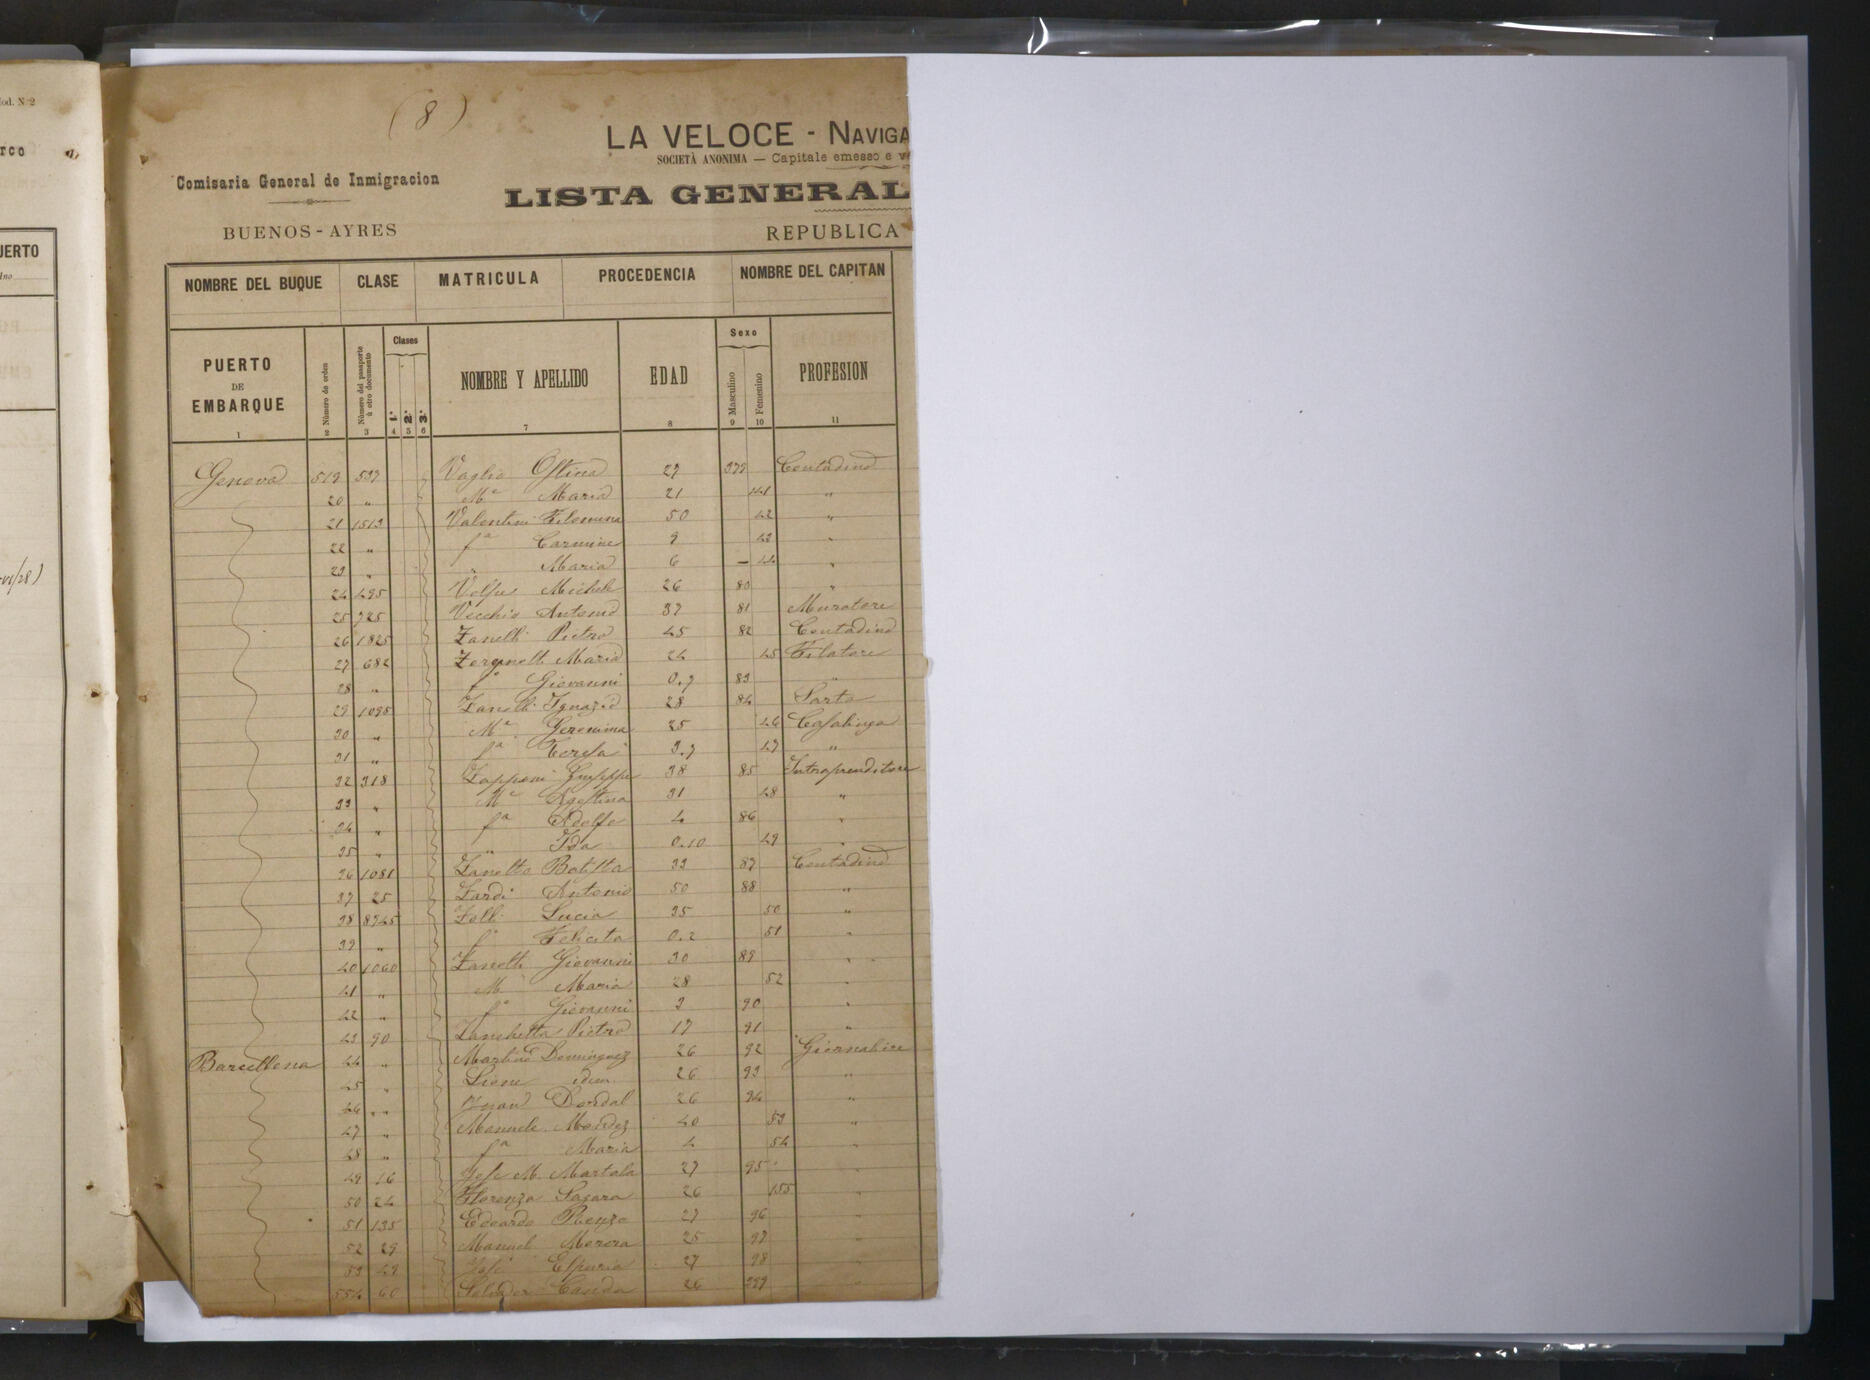 od. N 2
rco
UERTO
(8)
LA VELOCE - NAVIGA
SOCIETÀ ANONIMA — Capitale emesso e v
Comisaria General de Inmigracion
LISTA GENERAL
BUENOS-AYRES
REPUBLICA
NOMBRE DEL BUQUE CLASE MATRICULA PROCEDENCIA NOMBRE DEL CAPITAN
PUERTO DE EMBARQUE
Número de orden
Número del pasaporte ú otro documento
Clases
1.a 2.a 3.a
NOMBRE Y APELLIDO
EDAD
Sexo
Masculino Femenino
PROFESION
1 2 3 4 5 6 7 8 9 10 11
Genova 519 597 Vaglio 27 379 Contadino
20 " Ma Maria 21 141 "
21 1513 Valentini Filomena 50 42 "
22 " fa Carmine 9 43 "
23 " " Maria 6 – 44 "
24 495 Volpe Michele 26 80 "
25 725 Vecchio Antonio 37 81 Muratore
26 1825 Zanelli Pietro 45 82 Contadino
27 682 Maria 24 45 Filatore
28 " fo Giovanni 0.9 83 "
29 1095 Zanelli Ignazio 28 84 Sarto
30 " Ma Geronima 25 46 Casalinga
31 " fa Teresa 3.9 47 "
32 318 Zapponi Giuseppe 38 85 Intraprenditore
33 " Ma Agostina 31 48 "
34 " fa Adolfo 4 86 "
35 " " Ida 0.10 49 "
36 1081 Zanetta Batista 33 87 Contadino
37 25 Zardi Antonio 50 88 "
38 8745 Zolli Lucia 35 50 "
39 " fa Felicita 0.2 51 "
40 1060 Zanetti Giovanni 30 89 "
41 " M Maria 28 52 "
42 " fo Giovanni 3 90 "
43 90 Zanchetta Pietro 17 91 "
Barcellona 44 " Martino Dominguez 26 92 Giornaliere
45 " idem 26 93 "
46 " " Juan Dondal 26 94 "
47 " Manuele Mendez 40 53 "
48 " fa Maria 4 54 "
49 16 Jose M. Martala 27 95 "
50 24 Florenza Sagara 26 155 "
51 135 Edoardo 27 96 "
52 29 Manuel Morera 25 97 "
53 49 Jose 27 98 "
554 60 Salvador 26 399 "